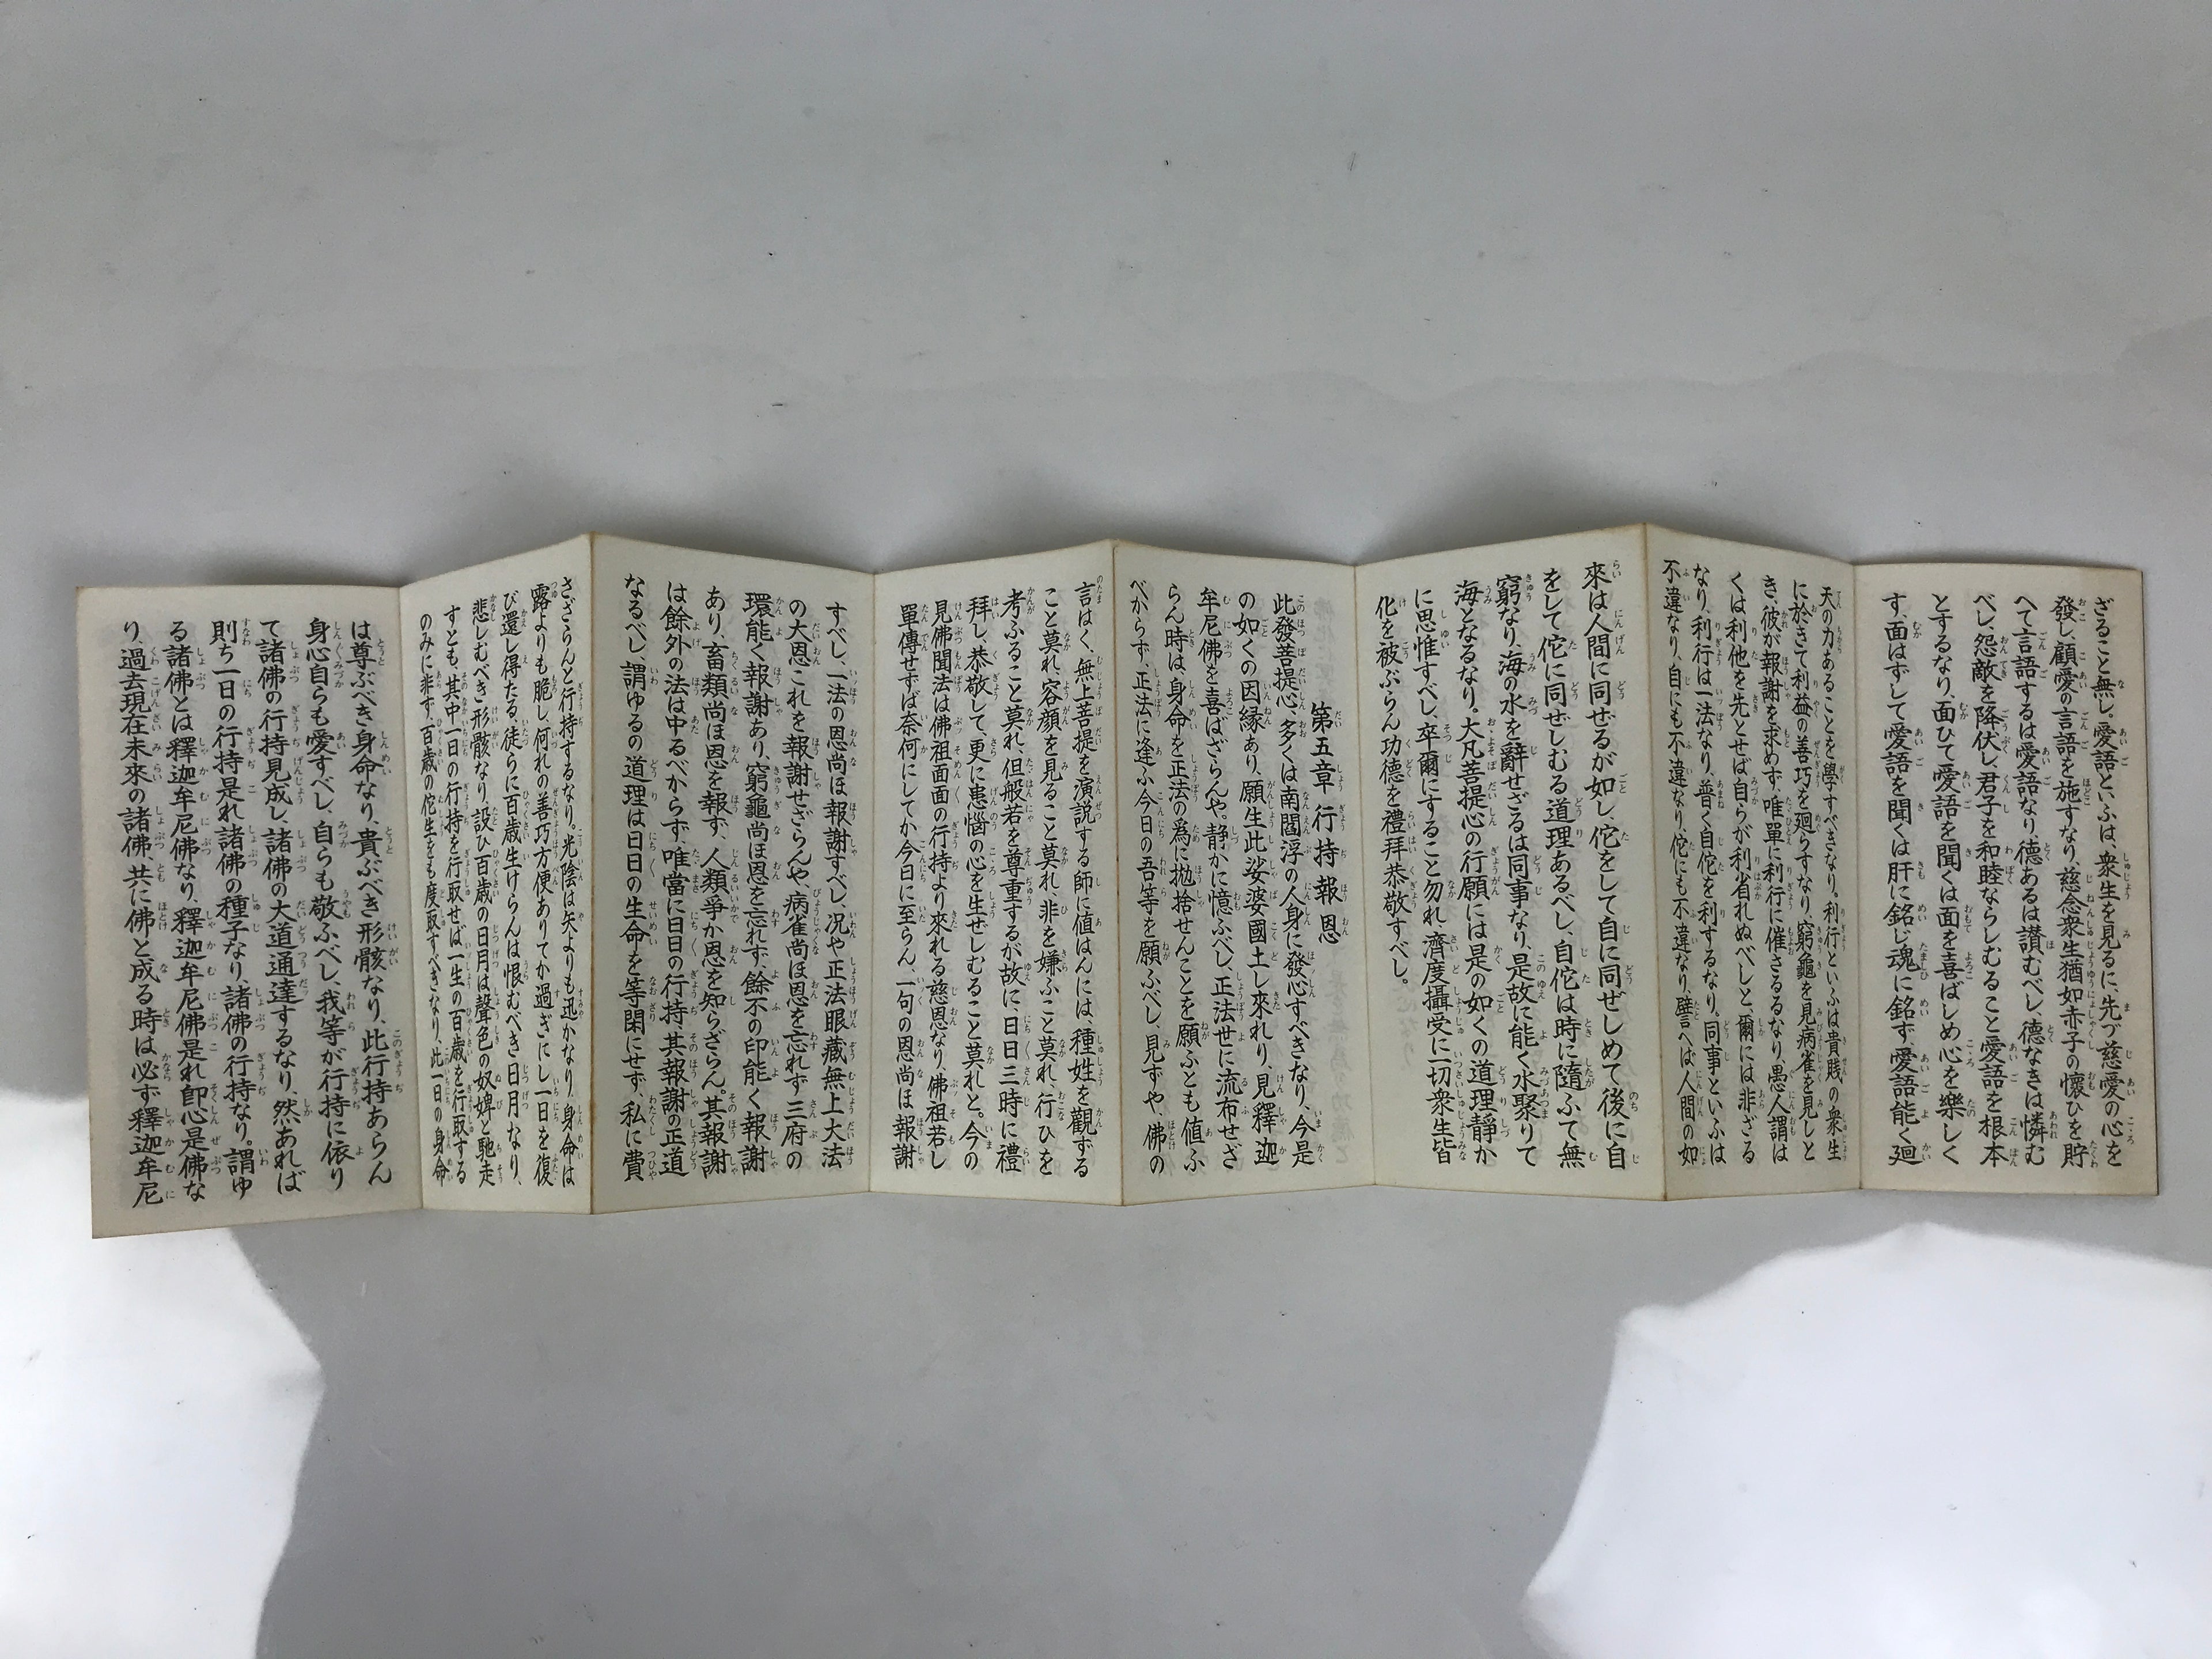 ざること無し。愛語と、いふは、衆生を見るに、先づ慈愛の心を
發し、顧愛の言語を施すなり、慈念衆生猶如赤子の懷ひを貯
へて言語するは愛語なり、德あるは讃むべし、德なきは憐む
べし、怨敵を降伏し、君子を和睦ならしむること愛語を根本
とするなり、面ひて愛語を聞くは面を喜ばしめ心を樂しく
す、面はずして愛語を聞くは肝に銘じ魂に銘ず、愛語能く廻
天の力あることを學すべきなり。利行といふは貴賤の衆生
に於きて利益の善巧を廻らすなり、窮龜を見病雀を見しと
き、彼が報謝を求めず、唯單に利行に催さるるなり、愚人謂は
くは利他を先とせば自らが利省れぬべしと、爾には非ざる
なり、利行は一法なり、普く自佗を利するなり。同事といふは
不違なり、自にも不違なり、佗にも不違なり、譬へば人間の如
來は人間に同ぜるが如し、佗をして自に同ぜしめて後に自
をして佗に同ぜしむる道理あるべし、自佗は時に隨ふて無
窮なり、海の水を辭せざるは同事なり、是故に能く水聚りて
海となるなり。大凡菩提心の行願には是の如くの道理靜か
に思惟すべし、卒爾にすること勿れ、濟度攝受に一切衆生皆
化を被ぶらん功德を禮拜恭敬すべし。
第五章 行持報恩
此發菩提心、多くは南閻浮の人身に發心すべきなり、今是
の如くの因緣あり、願生此娑婆國土し來れり、見釋迦
牟尼佛を喜ばざらんや。靜かに憶ふべし、正法世に流布せざ
らん時は、身命を正法の爲に抛捨せんことを願ふとも値ふ
べからず、正法に逢ふ今日の吾等を願ふべし、見ずや、佛の
言はく、無上菩提を演説する師に値はんには、種姓を觀ずる
こと莫れ、容顏を見ること莫れ、非を嫌ふこと莫れ、行ひを
考ふること莫れ、但般若を尊重するが故に、日日三時に禮
拜し、恭敬して、更に患惱の心を生ぜしむること莫れと。今の
見佛聞法は佛祖面面の行持より來れる慈恩なり、佛祖若し
單傳せずば奈何にしてか今日に至らん、一句の恩尚ほ報謝
すべし、一法の恩尚ほ報謝すべし、况や正法眼藏無上大法
の大恩これを報謝せざらんや、病雀尚ほ恩を忘れず三府の
環能く報謝あり、窮龜尚ほ恩を忘れず、餘不の印能く報謝
あり、畜類尚ほ恩を報ず、人類爭か恩を知らざらん。其報謝
は餘外の法は中るべからず、唯當に日日の行持、其報謝の正道
なるべし、謂ゆるの道理は日日の生命を等閑にせず、私に費
さざらんと行持するなり。光陰は矢よりも迅かなり、身命は
露よりも脆し、何れの善巧方便ありてか過ぎにし一日を復
び還し得たる、徒らに百歳生けらんは恨むべき日月なり、
悲しむべき形骸なり、設ひ百歳の日月は聲色の奴婢と馳走
すとも、其中一日の行持を行取せば一生の百歳を行取する
のみに非ず、百歳の佗生をも度取すべきなり、此一日の身命
は尊ぶべき身命なり、貴ぶべき形骸なり、此行持あらん
身心自らも愛すべし、自らも敬ふべし、我等が行持に依り
て諸佛の行持見成し、諸佛の大道通達するなり、然あれば
則ち一日の行持是れ諸佛の種子なり、諸佛の行持なり。謂ゆ
る諸佛とは釋迦牟尼佛なり、釋迦牟尼佛是れ卽心是佛な
り、過去現在未來の諸佛、共に佛と成る時は必ず釋迦牟尼